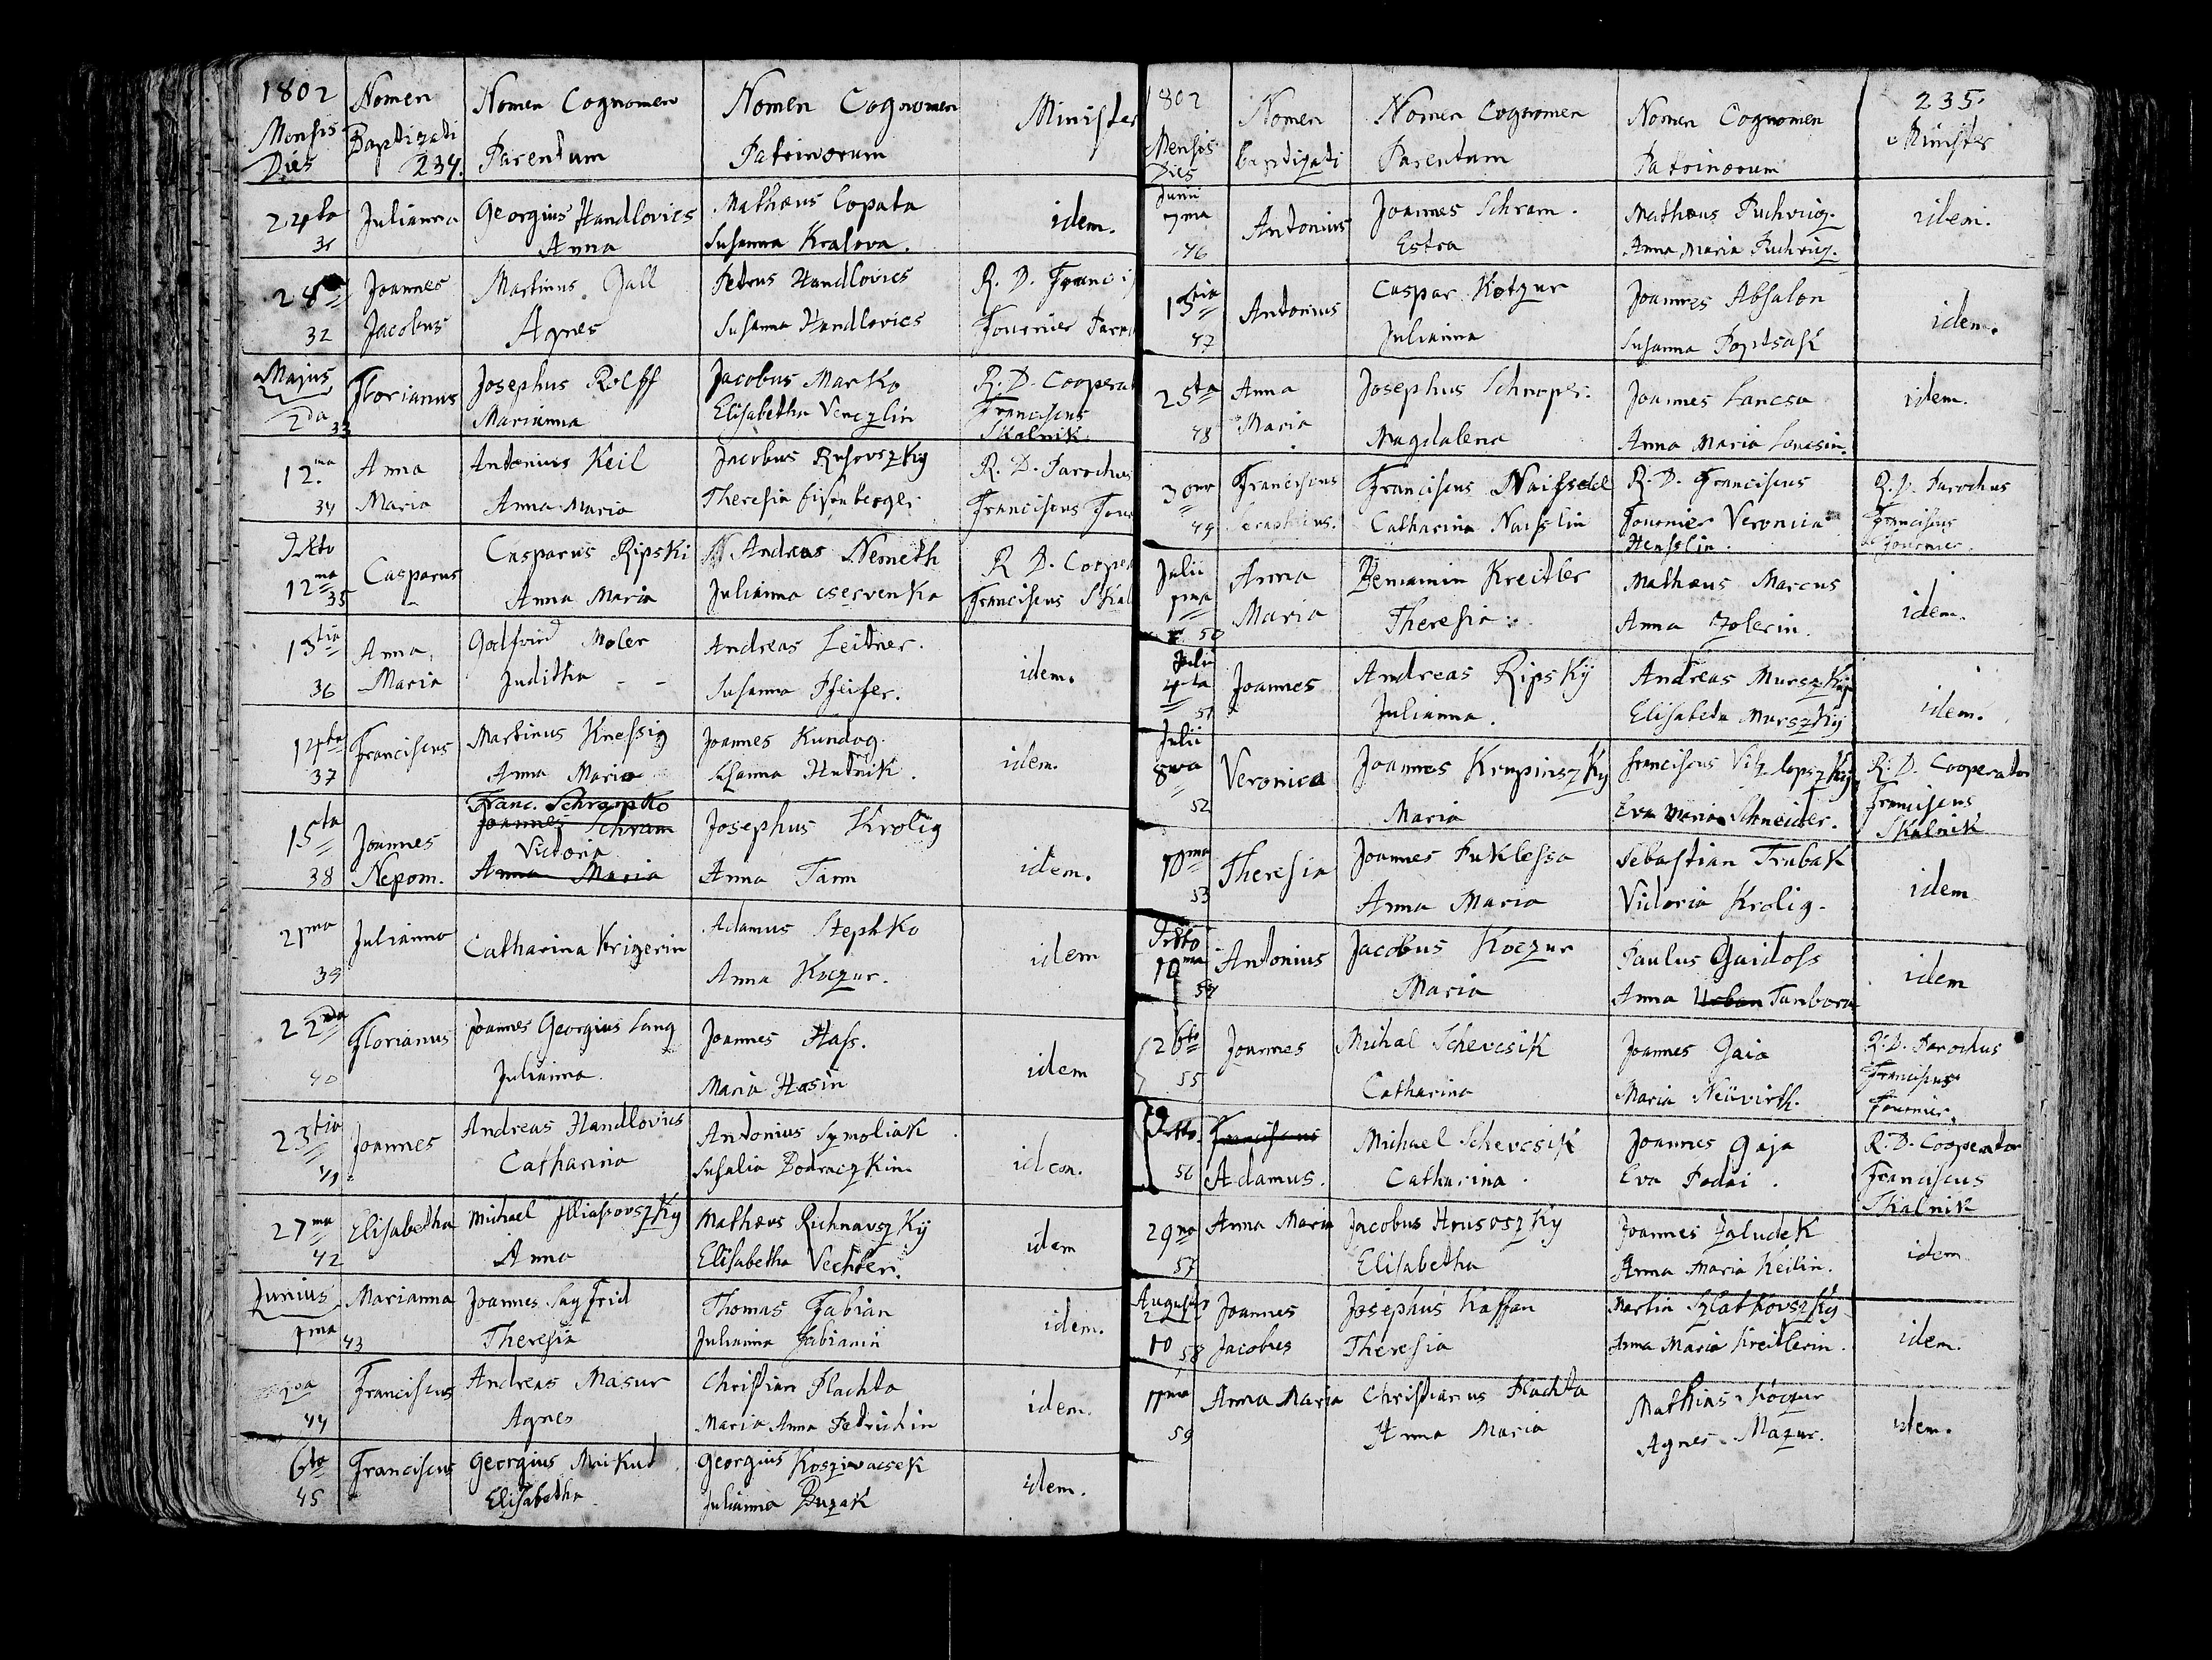 1802 Nomen Nomen Cognomen Nomen Cognomen Minister
Mensis Baptizati
Dies 234. Parentum Patrinorum
24ta Julianna Georgius Handlovics Mathæus Lopata idem.
31 Anna Susanna Kralova.
28 Joannes Martinus Jall Petrus Handlovics R. D. Franci
32 Jacobus Agnes Susanna Handlovics Fournier Paro
Majus Florianus Josephus Rolff Jacobus Marko R. D. Cooperat
2da 33 Marianna Elisabetha Venczlin Franciscus
Skalnik.
12.ma Anna Antonius Keil Jacobus Rusovszky R. D. Parochus
34 Maria Anna Maria Theresia Eisenberger Franciscus Four
Ditto Casparus Casparus Ripski Andreas Nemeth R D. Coopea
12ma 35 Anna Maria Julianna Cservenka Franciscus Skal
13tia Anna Godfrid Moler Andreas Leitner. idem.
36 Maria Juditha - - Susanna Pfeifer.
14ta Franciscus Martinus Knessig Joannes Kundog. idem.
37 Anna Maria Susanna Hutnik.
Franc. Schrampko
15ta Joannes Joannes Schram Josephus Krolig idem.
Victoria
38 Nepom. Anna Maria Anna Tam
21ma Julianna Catharina Krigerin Adamus Stephko idem
39 Anna Koczur.
22da Florianus Joannes Georgius Lang Joannes Hass. idem
40 Julianna. Maria Hasin
23tia Joannes Andreas Handlovics Antonius Szmoliak idem.
41 Catharina Susalia Bodnaczkin
27ma Elisabetha Michael Illiasovszky Mathæus Richnavszky idem
42 Anna Elisabetha Vechter.
Junius Marianna Joannes Sayfrid Thomas Fabian idem.
1ma 43 Theresia Julianna Fabianin
2da Franciscus Andreas Masur Christian Plachta idem.
44 Agnes Maria Anna Petrichin
6ta Franciscus Georgius Maikut Georgius Koszivacsek idem.
45 Elisabetha. Julianna Buzak
1802 Nomen Nomen Cognomen Nomen Cognomen 235.
Mensis Baptizati Parentum Patrinorum Minister
Dies
Junii
7ma Antonius Joannes Schram. Mathæus Puchrig. idem.
46 Estra Anna Maria Puchrig.
13tia Antonius Caspar Kotzur Joannes Absalon idem.
47 Julianna Susanna Poptsak
25ta Anna Josephus Schnoper. Joannes Lancsa idem.
48 Maria Magdalena Anna Maria Lancsin.
30ma Franciscus Franciscus Naissel R. D. Franciscus R. D. Parochus
49 Seraphicus. Catharina Naisslin Fournier Veronica Franciscus
Hensslin. Fournier.
Julii Anna Beniamin Kreitler Mathæus Marcus idem.
1ma Maria Theresia. Anna Zolerin.
50
Julii
4ta Joannes Andreas Ripsky Andreas Murszky idem.
51 Julianna. Elisabeta Murszky
Julii
8va Veronica Joannes Krupinszky Franciscus Vitzlopszky R. D. Cooperator
52 Maria Eva Maria Schneider. Franciscus
Skalnik
10ma Theresia Joannes Puklessa Sebastian Trubak idem
53 Anna Maria Victoria Krolig.
Ditto
10ma Antonius Jacobus Koczur Paulus Guidoss idem
54 Maria Anna Urban Tanbora
26ta Joannes Michal Schevcsik Joannes Gaia R. D. Parochus
55 Catharina Maria Neüvirth. Franciscus
Fournier.
Ditto Franciscus Michael Schevcsik Joannes Gaja R. D. Cooperator
56 Adamus. Catharina. Eva Podai. Franciscus
Skalnik
29na Anna Maria Jacobus Hrusoszky Joannes Zaludek idem
57 Elisabetha Anna Maria Keilin.
Augusti Joannes Josephus Kaffan Martin Szlatkovszky idem.
10 58 Jacobus Theresia Anna Maria Kreitlerin.
11ma Anna Maria Christianus Plachta Mathias Koczur idem.
59 Anna Maria Agnes Mazur.